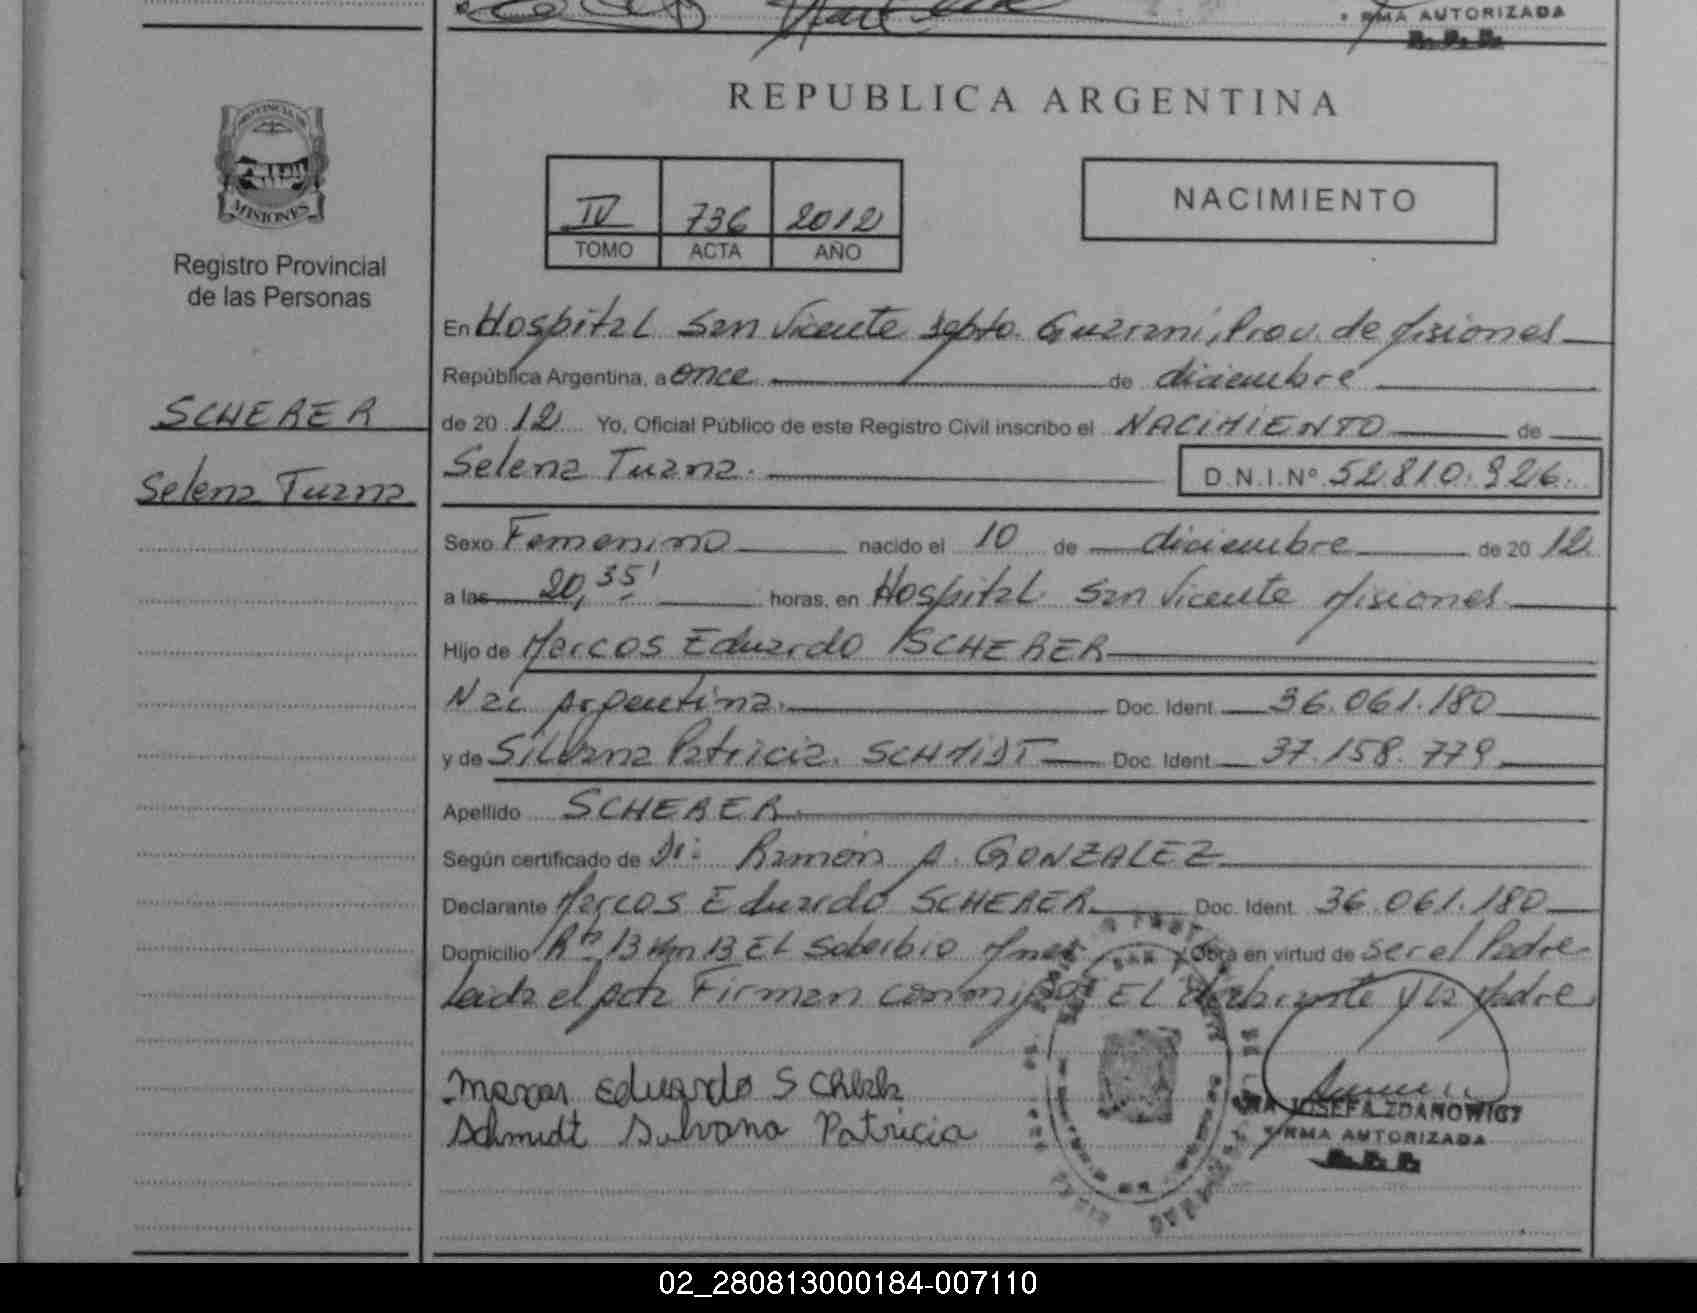 FIRMA AUTORIZADA
R.P.P.
REPUBLICA ARGENTINA
PROVINCIA DE
MISIONES
Registro Provincial
de las Personas
IV 736 2012
TOMO ACTA AÑO
NACIMIENTO
SCHERER
Selena Tuana
En Hospital San Vicente Depto. Guarani, Prov. de Misiones
República Argentina, a once de diciembre
de 2012 Yo, Oficial Público de este Registro Civil inscribo el NACIMIENTO de
Selena Tuana. D.N.I.Nº 52.810.926.
Sexo Femenino nacido el 10 de diciembre de 2012
a las 20,35' horas, en Hospital San Vicente Misiones
Hijo de Marcos Eduardo SCHERER
Nac Argentina. Doc. Ident. 36.061.180
y de Silvana Patricia. SCHMIDT Doc. Ident. 37.158.779
Apellido SCHERER
Según certificado de Dr: Ramón A. GONZALEZ
Declarante Marcos Eduardo SCHERER Doc. Ident. 36.061.180
Domicilio Rta 13 Km 13 EL Soberbio Mnes Obra en virtud de Ser el Padre
Leida el Acta Firman conmigo EL declarante y la Madre
Marcos Eduardo Scherer
Schmidt Silvana Patricia
JOSEFA ZDANOWICZ
FIRMA AUTORIZADA
R.P.P.
02_280813000184-007110